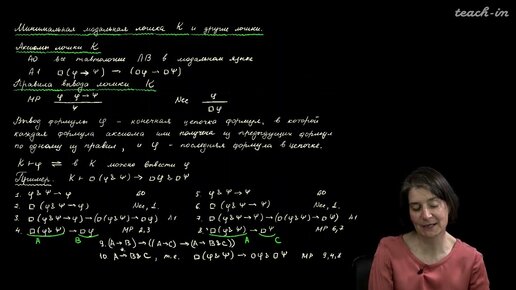 teach-in
Минимальная модальная логика K и другие логики.
Аксиомы логики K
A0 все тавтологии ЛВ в модальном языке
A1 □(φ→ψ) → (□φ→□ψ)
Правила вывода логики K
MP φ φ→ψ / ψ Nec φ / □φ
Вывод формулы φ – конечная цепочка формул, в которой
каждая формула аксиома или получена из предыдущих формул
по одному из правил, и φ – последняя формула в цепочке.
K⊢φ ⇌ в K можно вывести φ
Пример. K ⊢ □(φ&ψ) → □φ&□ψ
1. φ&ψ → φ A0 5. φ&ψ → ψ A0
2. □(φ&ψ→φ) Nec, 1. 6. □(φ&ψ→ψ) Nec, 1.
3. □(φ&ψ→φ)→(□(φ&ψ)→□φ) A1 7. □(φ&ψ→ψ)→(□(φ&ψ)→□ψ) A1
4. □(φ&ψ)→□φ MP 2,3 8. □(φ&ψ)→□ψ MP 6,7
A B A C
9. (A→B)→((A→C)→(A→B&C))
10. A→B&C, т.е. □(φ&ψ)→□φ&□ψ MP 9,4,8